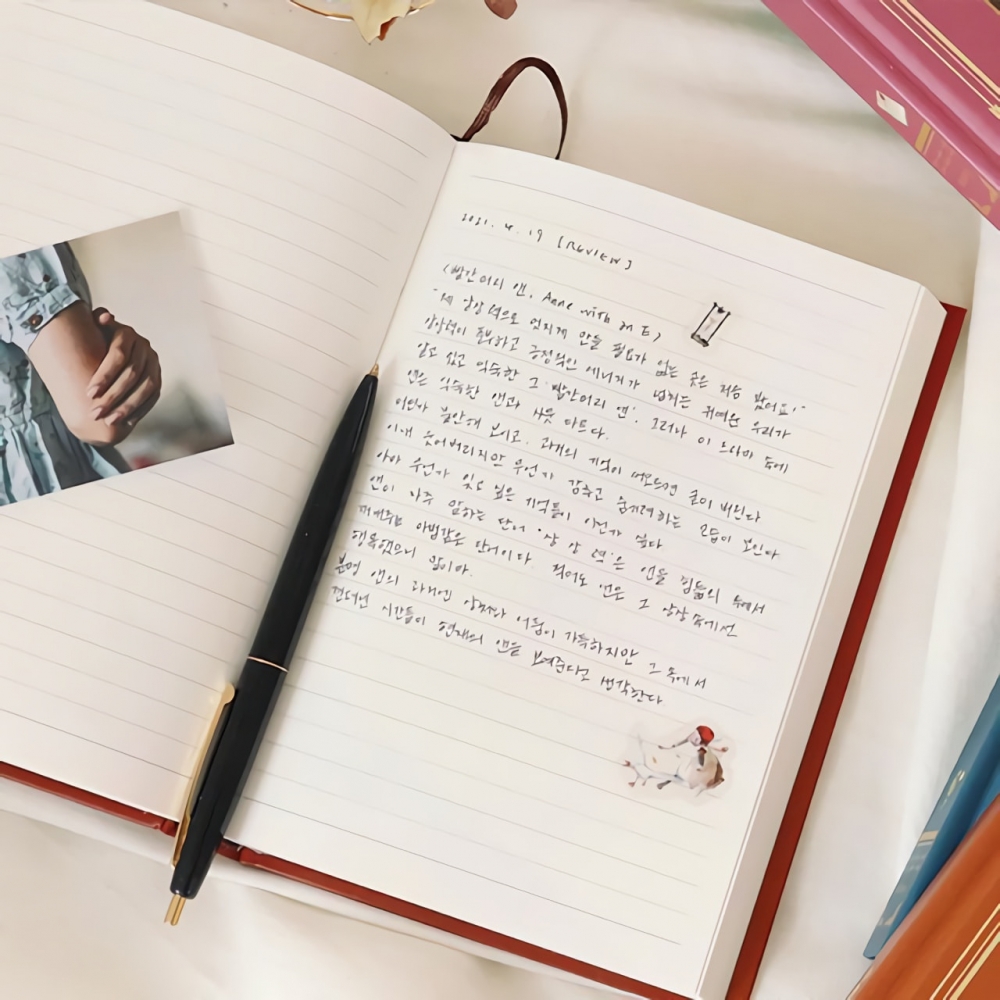 2021. 4. 19 [REVIEW]
<빨간머리 앤, Anne with an E>
"제 상상력으로 멋지게 만들 필요가 없는 곳은 처음 봤어요!"
상상력이 풍부하고 긍정적인 에너지가 넘치는 귀여운 우리가
알고 있고 익숙한 그 '빨간머리 앤'. 그러나 이 드라마 속에
앤은 익숙한 앤과 사뭇 다르다.
어딘가 불안해 보이고, 과거의 기억이 떠오르면 굳어 버린다
이내 웃어버리지만 무언가 감추고 숨기려하는 모습이 보인다
아마 무언가 잊고 싶은 기억들이 아닌가 싶다
앤이 자주 말하는 단어 '상상력'은 앤을 힘듦의 속에서
마법같은 단어이다. 적어도 앤은 그 상상속에서
행복했으니 말이야.
분명 앤의 과거엔 상처와 어둠이 가득하지만 그 속에서
견뎌낸 시간들이 현재의 앤을 보여준다고 생각한다